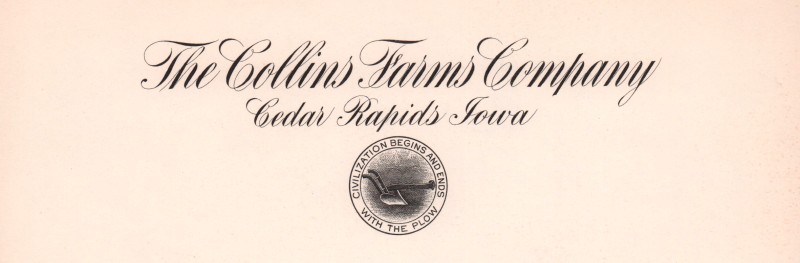 The Collins Farms Company
Cedar Rapids Iowa
CIVILIZATION BEGINS AND ENDS
WITH THE PLOW